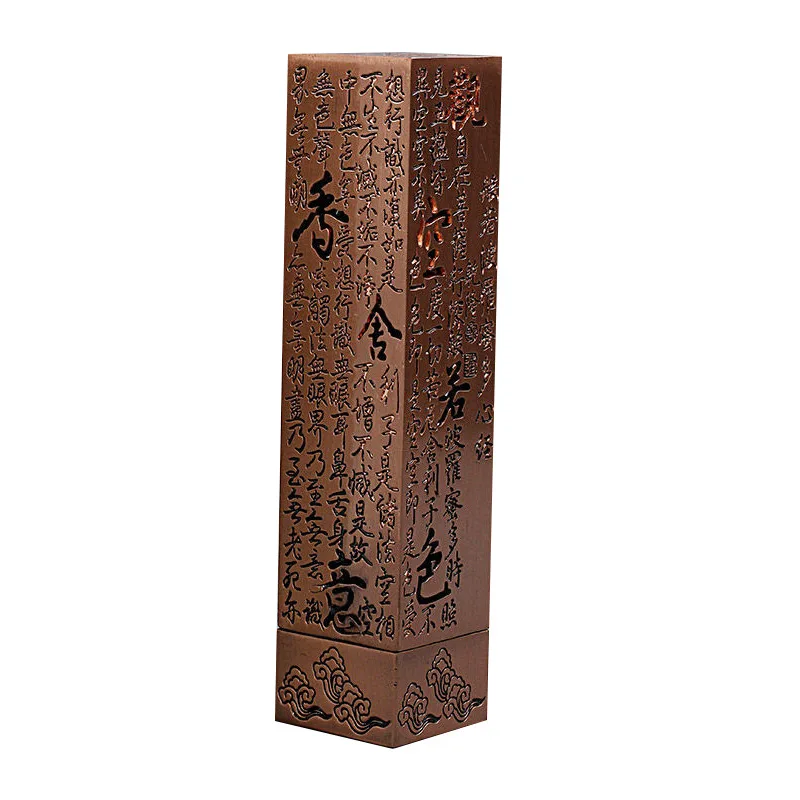 般若波羅蜜多心經
觀自在菩薩行深般若波羅蜜多時照
見五蘊皆空度一切苦厄舍利子色不
異空空不異色色即是空空即是色受
想行識亦復如是舍利子是諸法空相
不生不滅不垢不淨不增不減是故空
中無色無受想行識無眼耳鼻舌身意
無色聲香味觸法無眼界乃至無意識
界無無明亦無無明盡乃至無老死亦